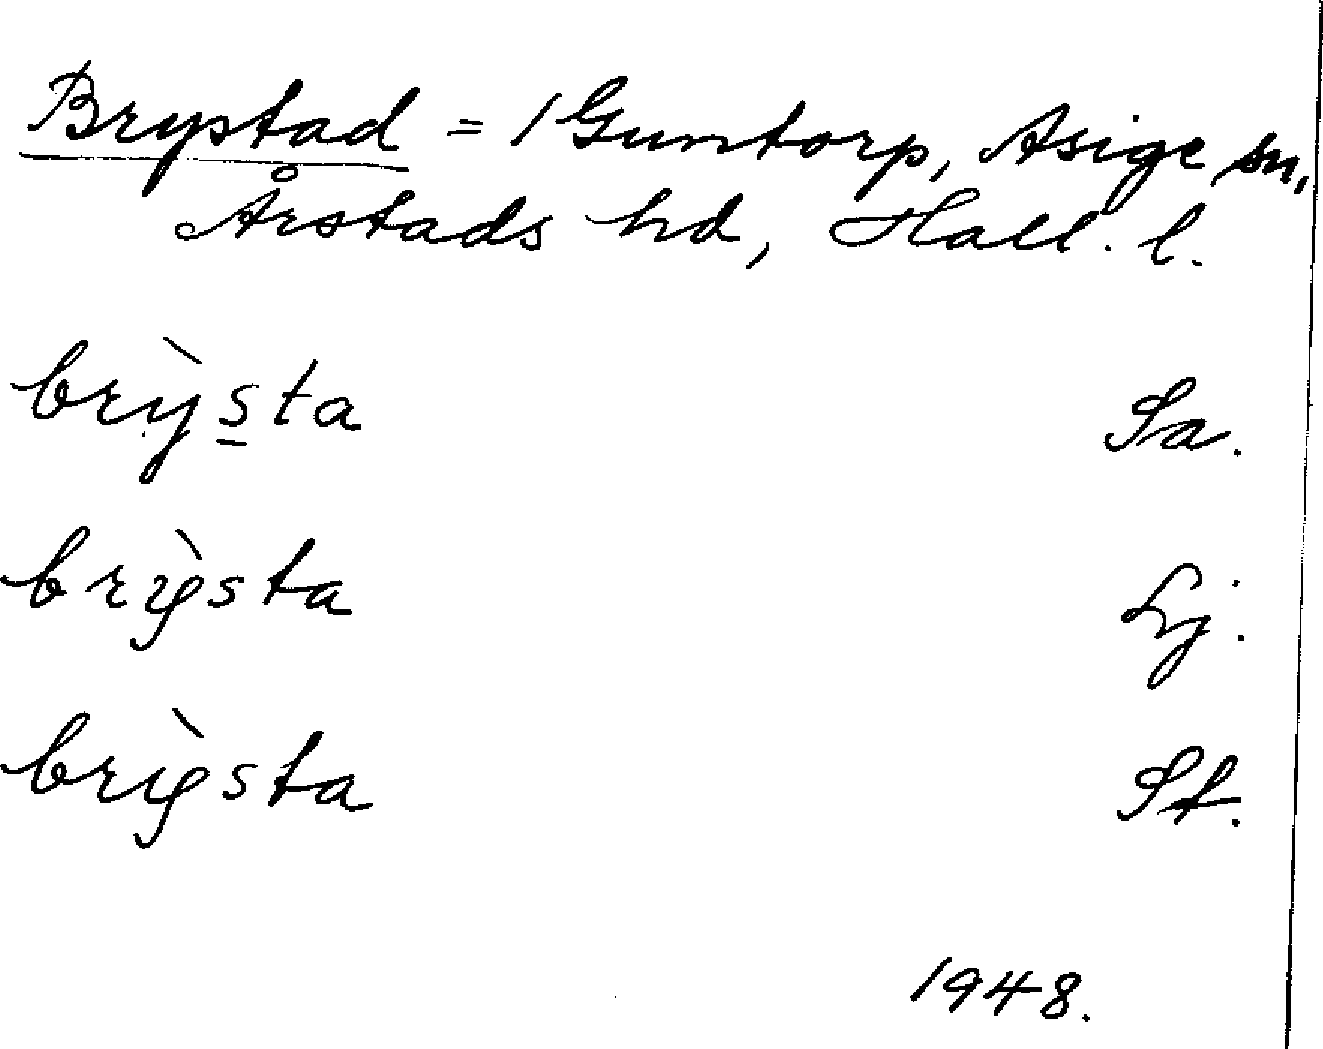 Brystad = 1 Guntorp, Asige sn,
Årstads hd, Hall. l.
brỳs̲ta Sa.
brỳsta Lj.
brỳsta St.
1948.